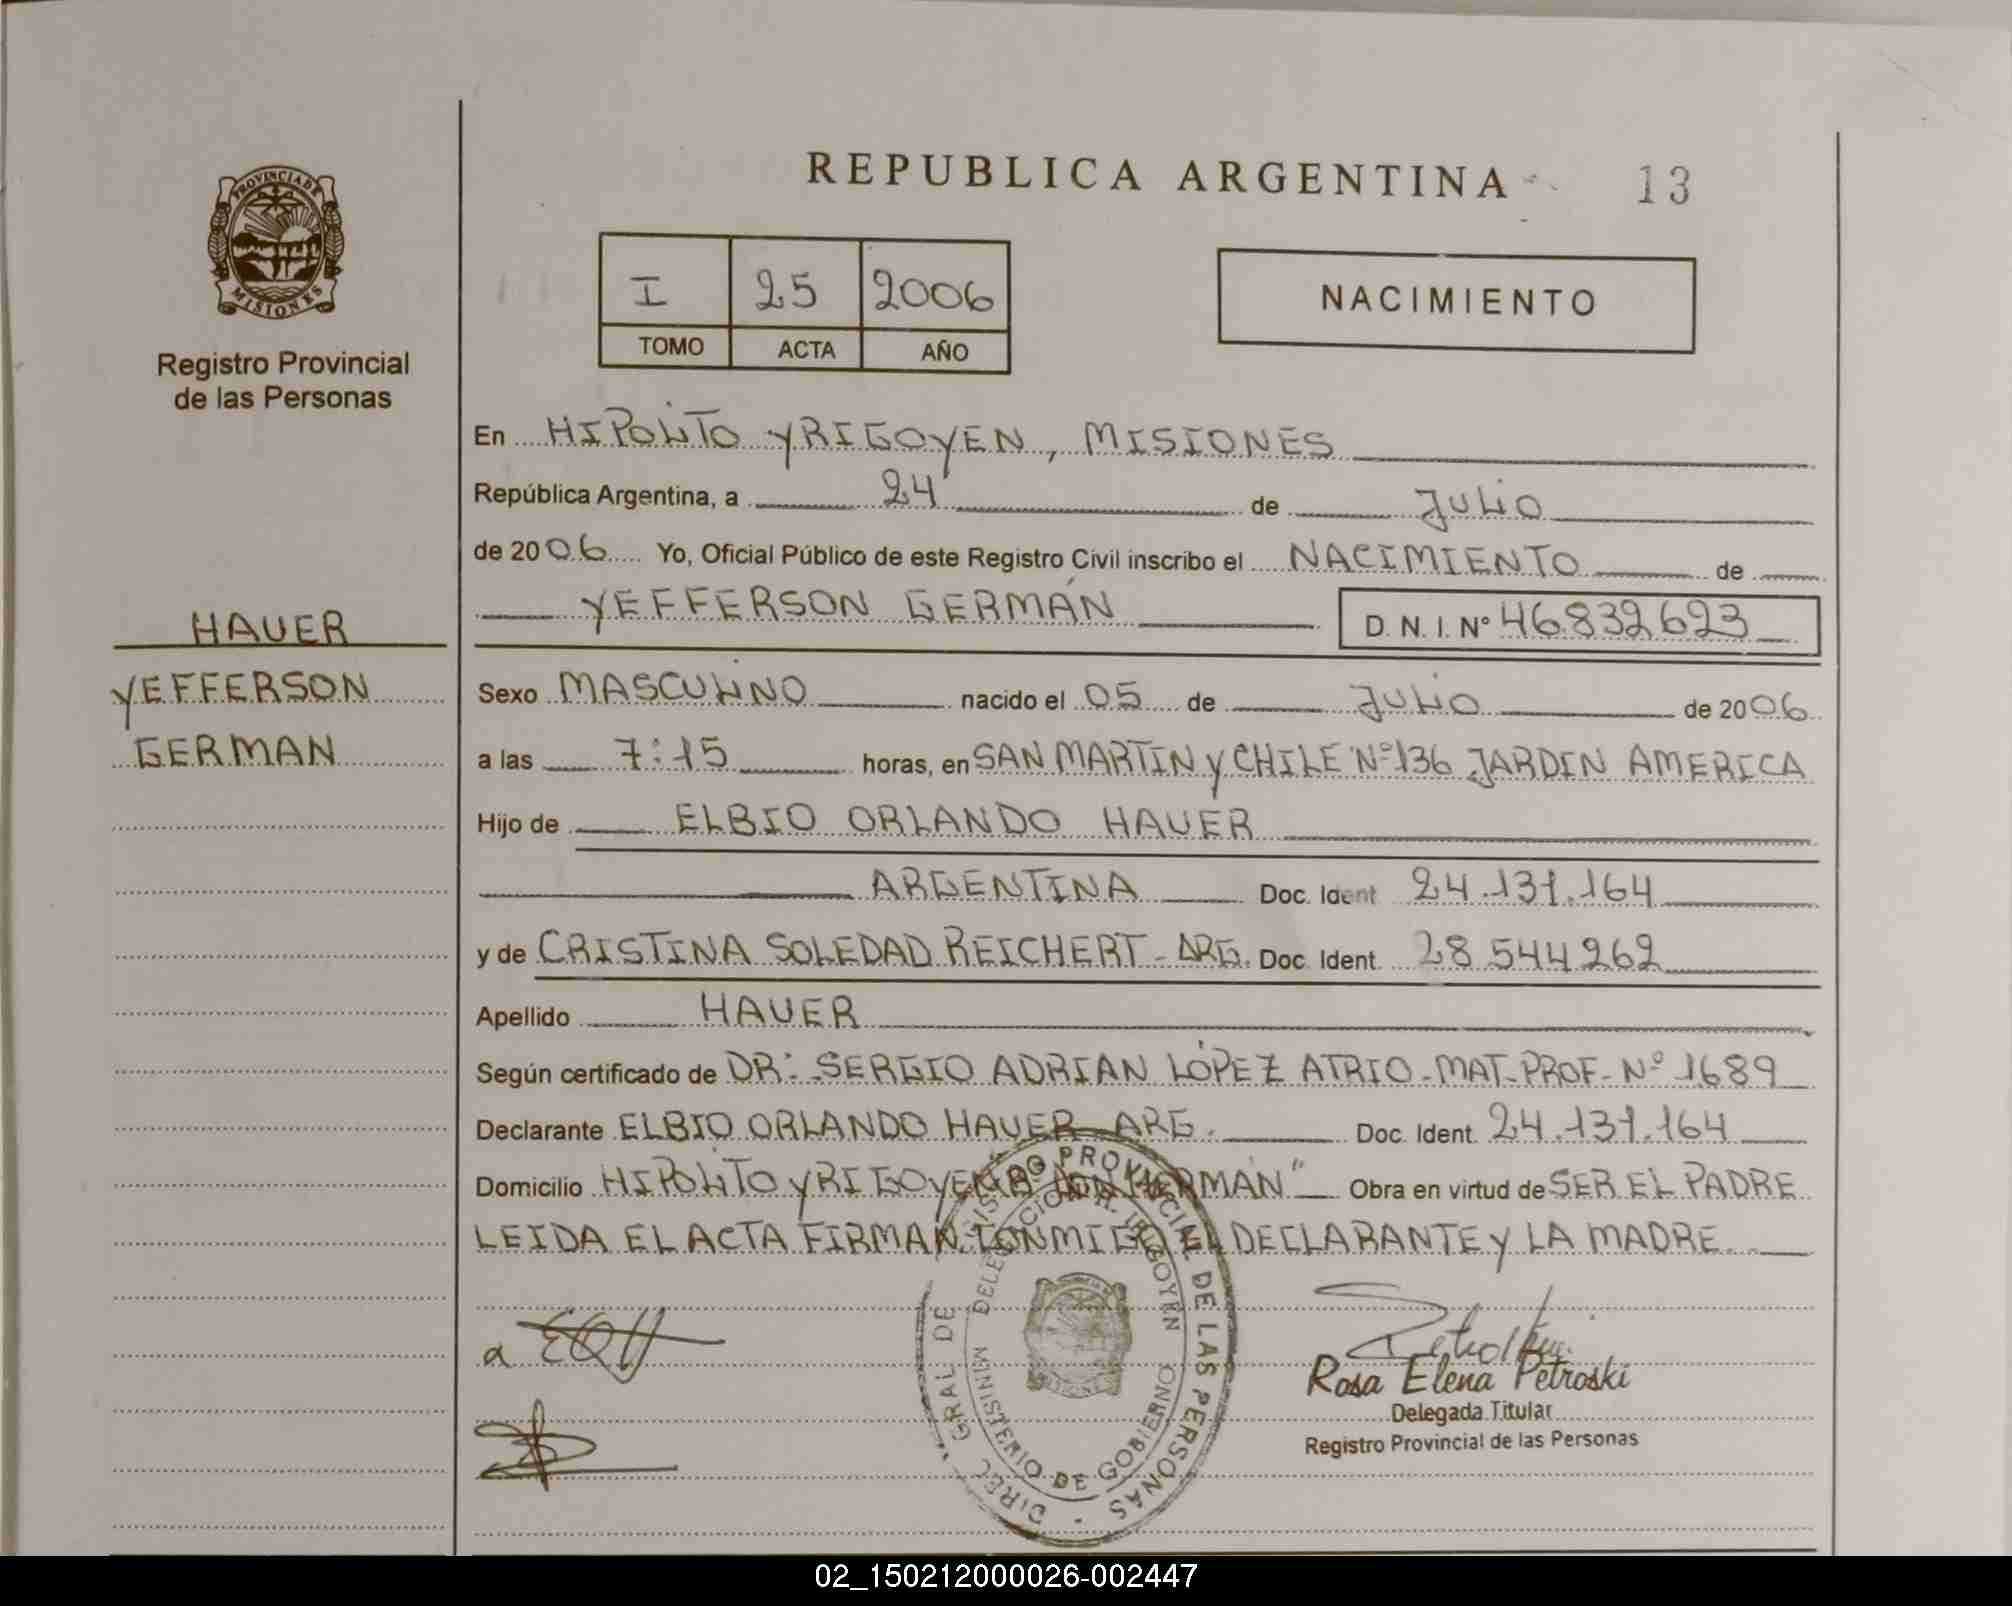 REPUBLICA ARGENTINA 13
PROVINCIA DE
MISIONES
Registro Provincial
de las Personas
I 25 2006
TOMO ACTA AÑO
NACIMIENTO
En HIPOLITO YRIGOYEN, MISIONES
República Argentina, a 24 de JULIO
de 2006 Yo, Oficial Público de este Registro Civil inscribo el NACIMIENTO de
YEFFERSON GERMÁN D.N.I. Nº 46832623
HAUER
YEFFERSON
GERMAN
Sexo MASCULINO nacido el 05 de JULIO de 2006
a las 7:15 horas, en SAN MARTIN y CHILE Nº 136 JARDIN AMERICA
Hijo de ELBIO ORLANDO HAUER
ARGENTINA Doc. Ident 24.131.164
y de CRISTINA SOLEDAD REICHERT - ARG. Doc. Ident. 28 544 262
Apellido HAUER
Según certificado de DR: SERGIO ADRIAN LÓPEZ ATRIO - MAT- PROF- Nº 1689
Declarante ELBIO ORLANDO HAUER ARG. Doc. Ident. 24.131.164
Domicilio HIPOLITO YRIGOYEN GERMAN" Obra en virtud de SER EL PADRE
LEIDA EL ACTA FIRMAN CONMIGO EL DECLARANTE y LA MADRE.
DIREC. GRAL DE REGISTRO PROVINCIAL DE LAS PERSONAS
MINISTERIO DE GOBIERNO
Rosa Elena Petroski
Delegada Titular
Registro Provincial de las Personas
02_150212000026-002447